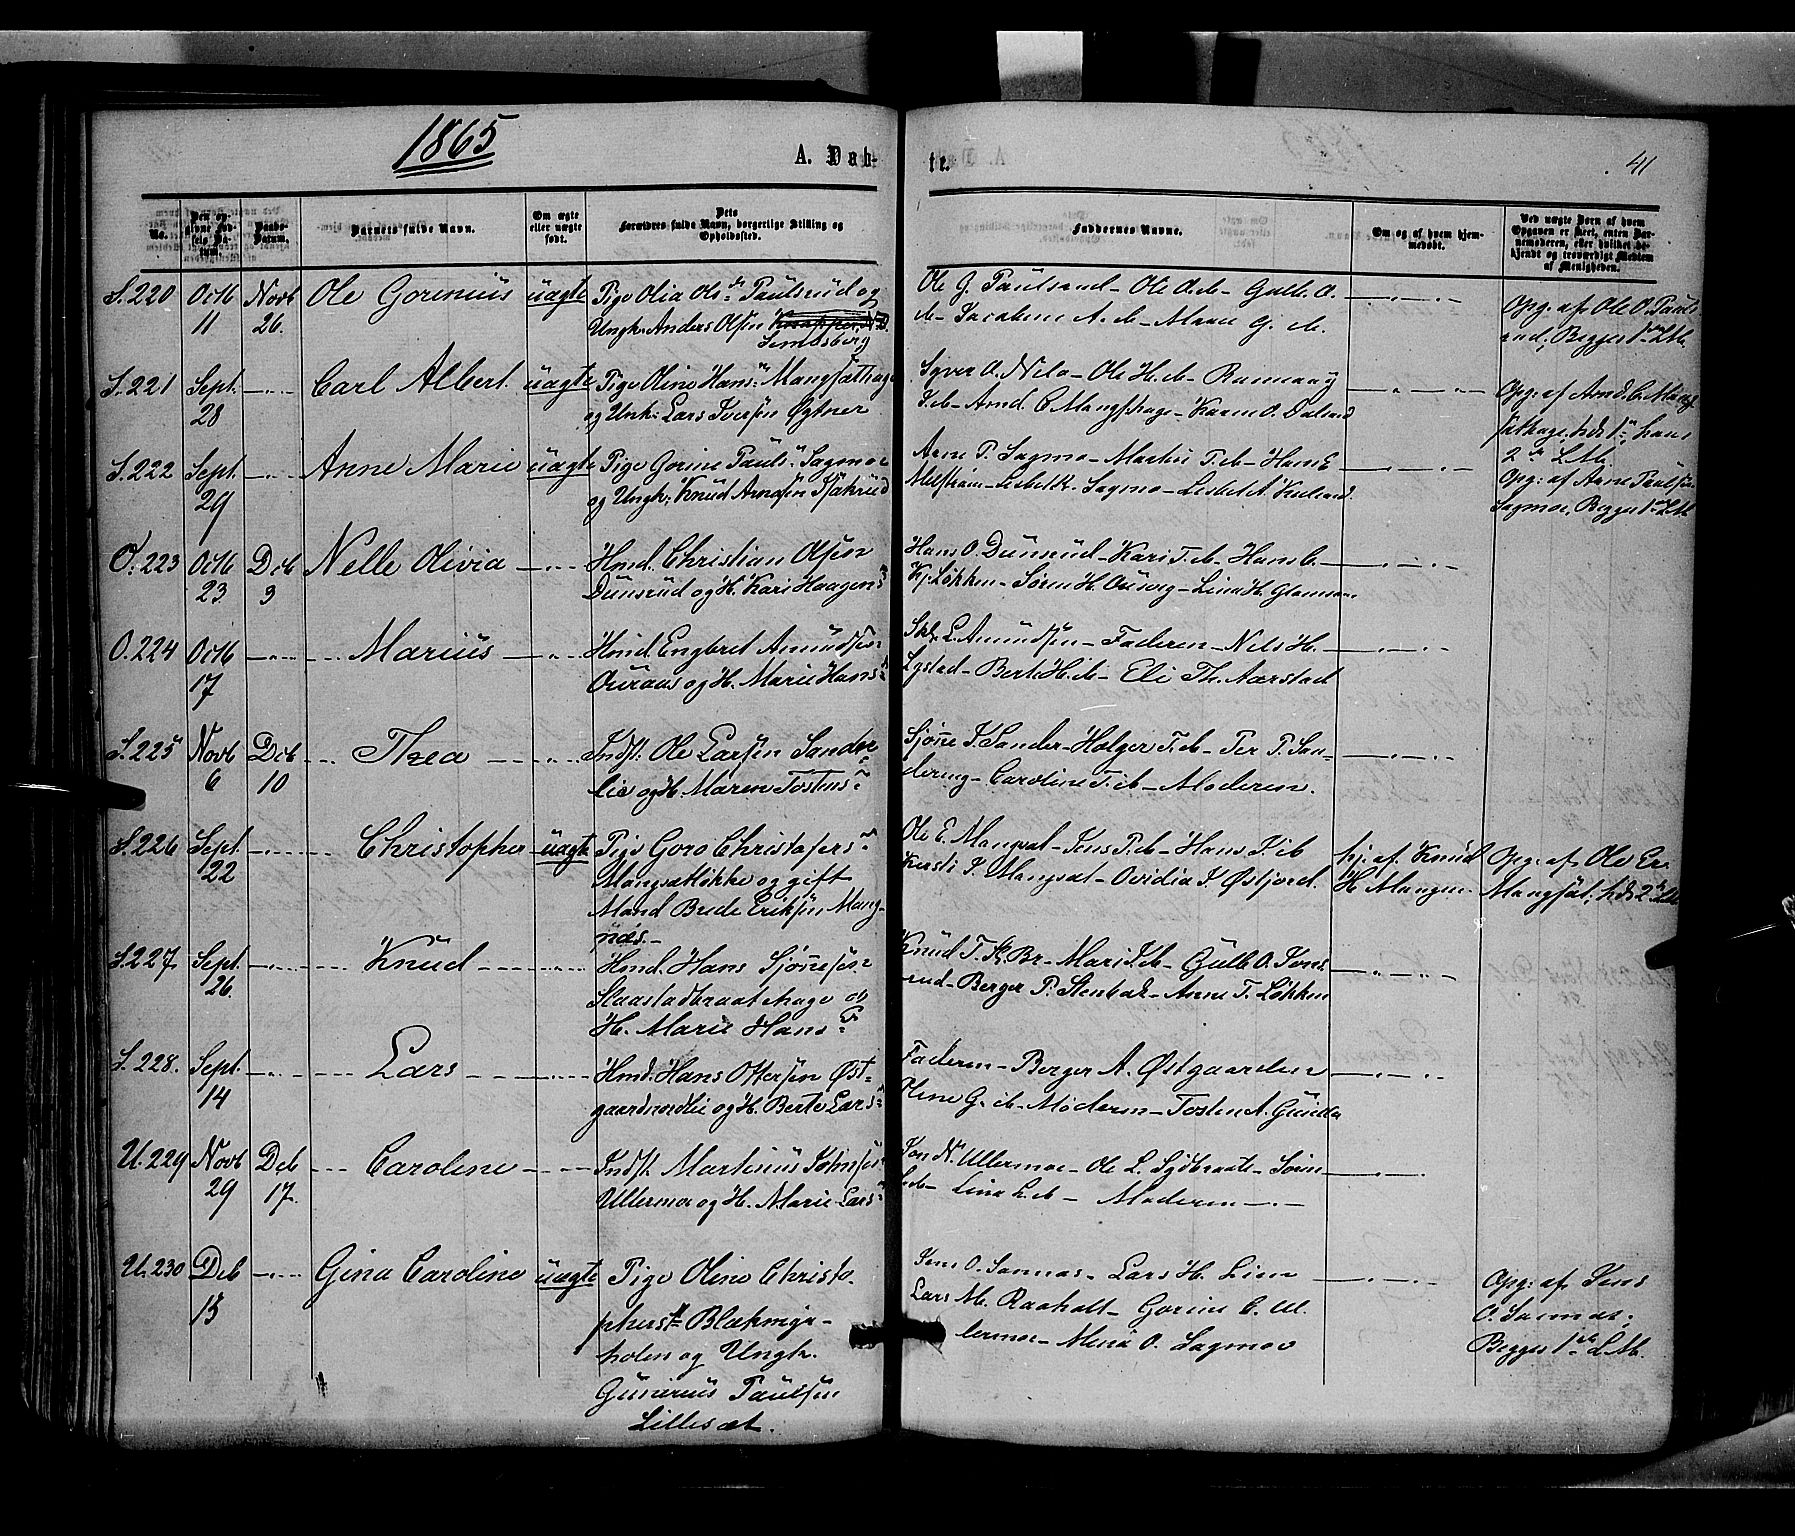 1865
A. Dåb-
te.
41
No.
Den op-
givne Fød-
sels Da-
tum.
Daabs-
Datum.
Barnets fulde Navn.
Om ægte
eller uægte
født.
Dets
Forældres fulde Navn, borgerlige Stilling og
Opholdssted.
Faddernes Navne.
Om og af hvem hjem-
medøbt.
Ved uægte Børn af hvem
Opgaven er skeet, enten Bar-
nemoderen, eller hvilket be-
kjendt og troværdigt Medlem
af Menigheden.
S. 220 Octb 11 Novb 26. Ole Gorinius uægte
Pige Olia Olsdr Paulsrud og
Ungk. Anders Olsen
Simensberg
Ole G. Paulsrud - Ole O. ib - Gulb. O.
ib - Jacobine A. ib - Maren G. ib.
Opg. af Ole O. Pauls
rud, Begges 1ste LM.
S. 221 Sept. 28 Carl Albert uægte
Pige Oline Hansdr Mangsæthage
og Unk. Lars Iversen Øgtner
Syver O. Nilo - Ole H. ib -
ib - Arnd. C. Mangshage - Karen O. Daland
Opg. af Arnd. C. Mang
sæthage, hds 1ste, hans
2den LM.
S. 222 Sept. 29 Anne Marie uægte
Pige Gorine Paulsdr Sagmoe
og Ungk. Knud Arnesen Isakrud
Arne P. Sagmo - Marthe T. ib - Hans E
- Lisbeth K. Sagmo - Lisbet A.
Opg. af Arne Paulsen
Sagmoe, Begges 1ste LM
O. 223 Octb 23 Deb 3 Nelle Olivia
Hmd. Christian Olsen
Dunsrud og H. Kari Haagensdr
Hans O. Dunsrud - Kari T. ib - Hans C.
Kj. Løkken - Søren H. Ousverg - Lina H. Glomsen
O. 224 Octb 17 Marius
Hmd. Engbret Amundsen
Ouraas og H. Marie Hansdr
Skl. L. Amundsen - Faderen - Nils H.
Lystad - Berte H. ib - Eli Th. Aarstad
S. 225 Novb 6 Deb 10 Thea
Indst. Ole Larsen Sander
lie og H. Maren Tostensdr
Sjønne I. Sander - Holger T. ib - Per P. San-
dereng - Caroline T. ib - Moderen.
S. 226 Sept. 22 Christopher uægte
Pige Goro Christofersdr
Mangsætløkke og gift
Mand Brede Eriksen Mang-
næs.-
Ole E. Mangsæt - Jens P. ib - Hans P. ib
Kersti P. Mangsæt - Ovidia P. Østjord.
hj. af Knud
H. Mangen
Opg. af Ole Er.
Mangsæt, hds 2den LM
S. 227 Sept. 26. Knud
Hmd. Hans Sjønnesen
Slaastadbraatehage og
H. Marie Hansdr
Knud T. Sk. Br - Mari K. ib - Gulb. O. Jons
rud - Berger P. Stenbæk - Anne T. Løkken
S. 228. Sept. 14 Lars
Hmd. Hans Ottersen Øst-
gaardnordlie og H. Berte Larsdr
Faderen - Berger A. Østgaarden
Oline G. ib - Moderen - Tosten A. Gunder
U. 229 Novb 29 Deb 17. Caroline
Indst. Martinius Johnsen
Ullermoe og H. Marie Larsdr
Jon N. Ullermoe - Ole L. Sydbraate - Søren
L. ib - Lina L. ib - Moderen
U. 230 Deb 15 Gina Caroline uægte
Pige Oline Christo-
phersdr Blekinge-
holen og Ungk.
Gunerius Paulsen
Lillesæt.
Jens O. Sannæs - Lars H. Lien
Lars M. Raaholt - Gorine C. Ul
lermoe - Mina O. Sagmoe
Opg. af Jens
O. Sannæs;
Begges 1ste LM.